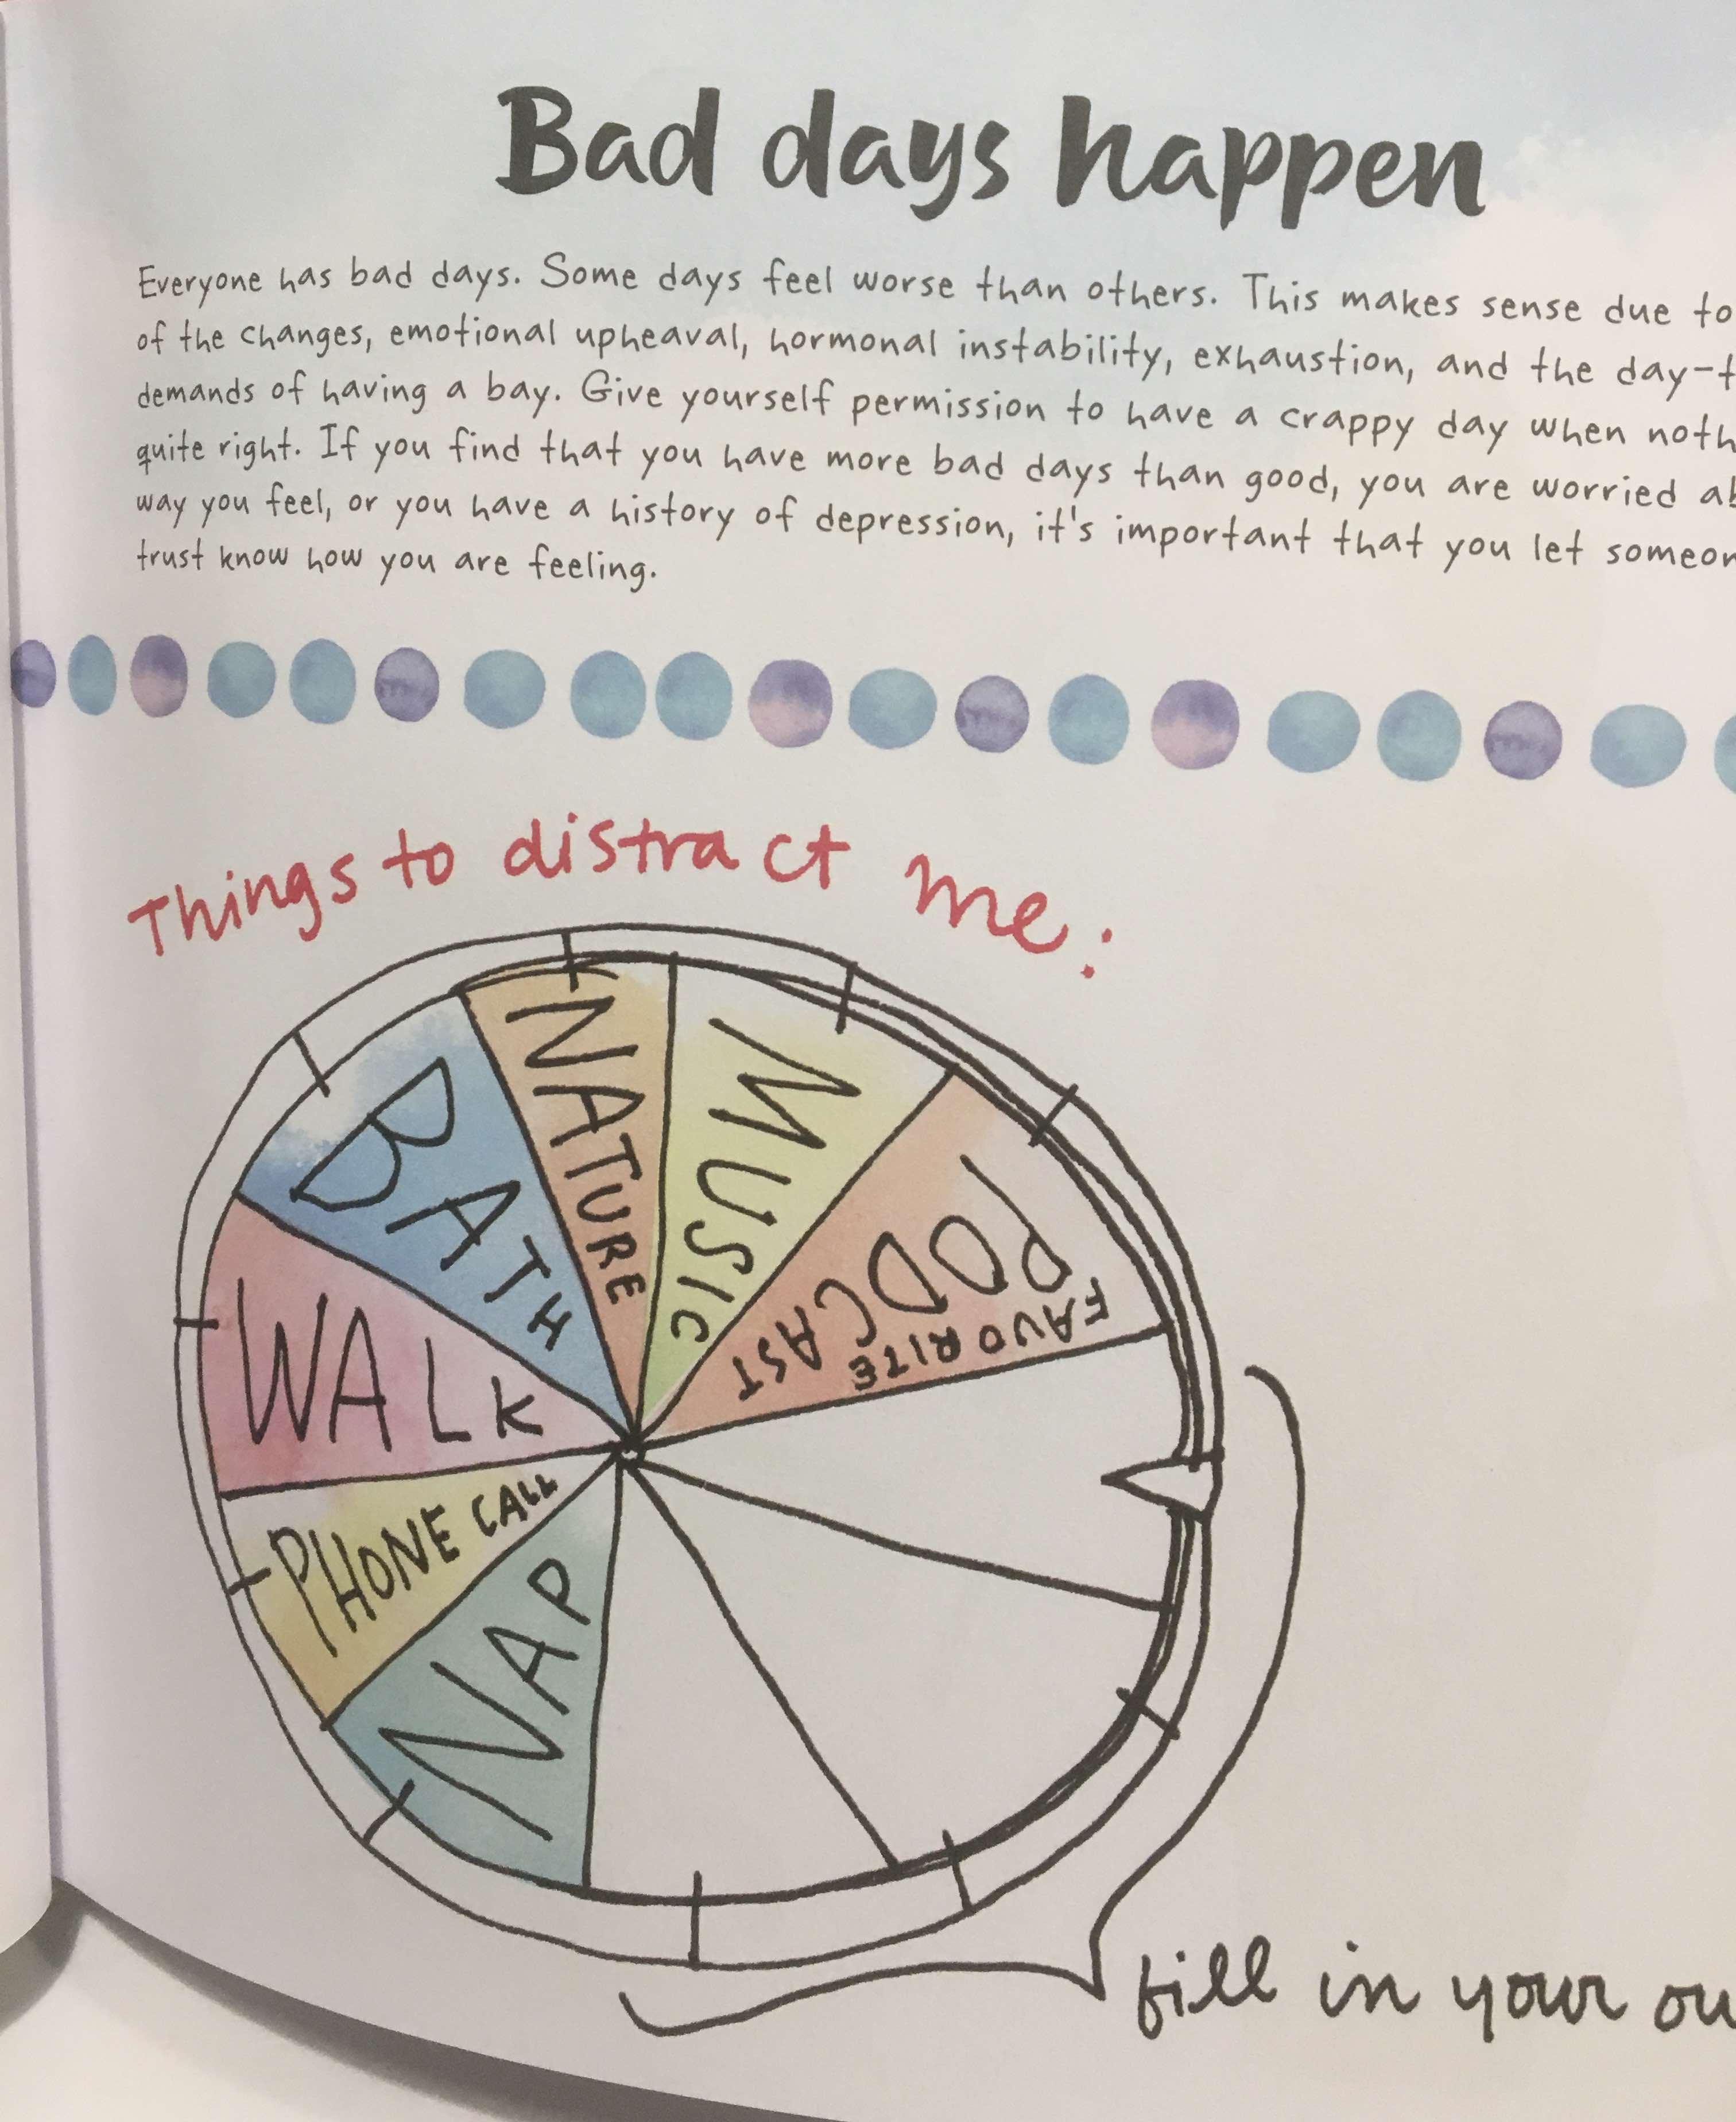 Bad days happen
Everyone has bad days. Some days feel worse than others. This makes sense due to
of the changes, emotional upheaval, hormonal instability, exhaustion, and the day-t
demands of having a bay. Give yourself permission to have a crappy day when noth
quite right. If you find that you have more bad days than good, you are worried ab
way you feel, or you have a history of depression, it's important that you let someon
trust know how you are feeling.
Things to distract me:
NATURE
MUSIC
BATH
FAVORITE
PODCAST
WALK
PHONE CALL
NAP
fill in your ow